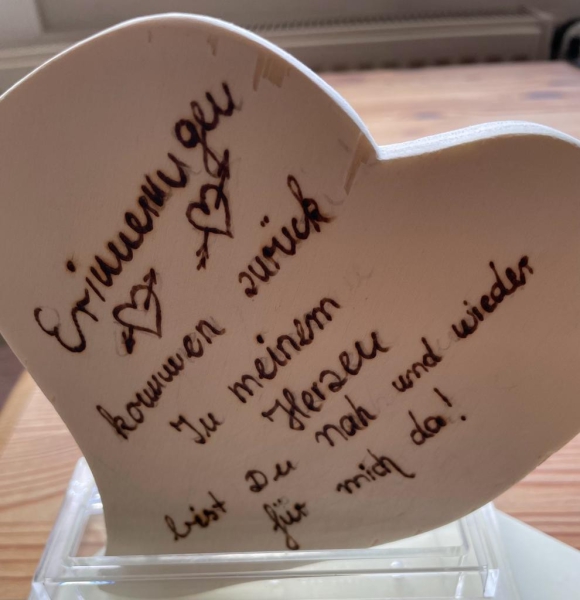 Erinnerungen
kommen zurück
In meinem
Herzen
bist Du nah und wieder
für mich da!